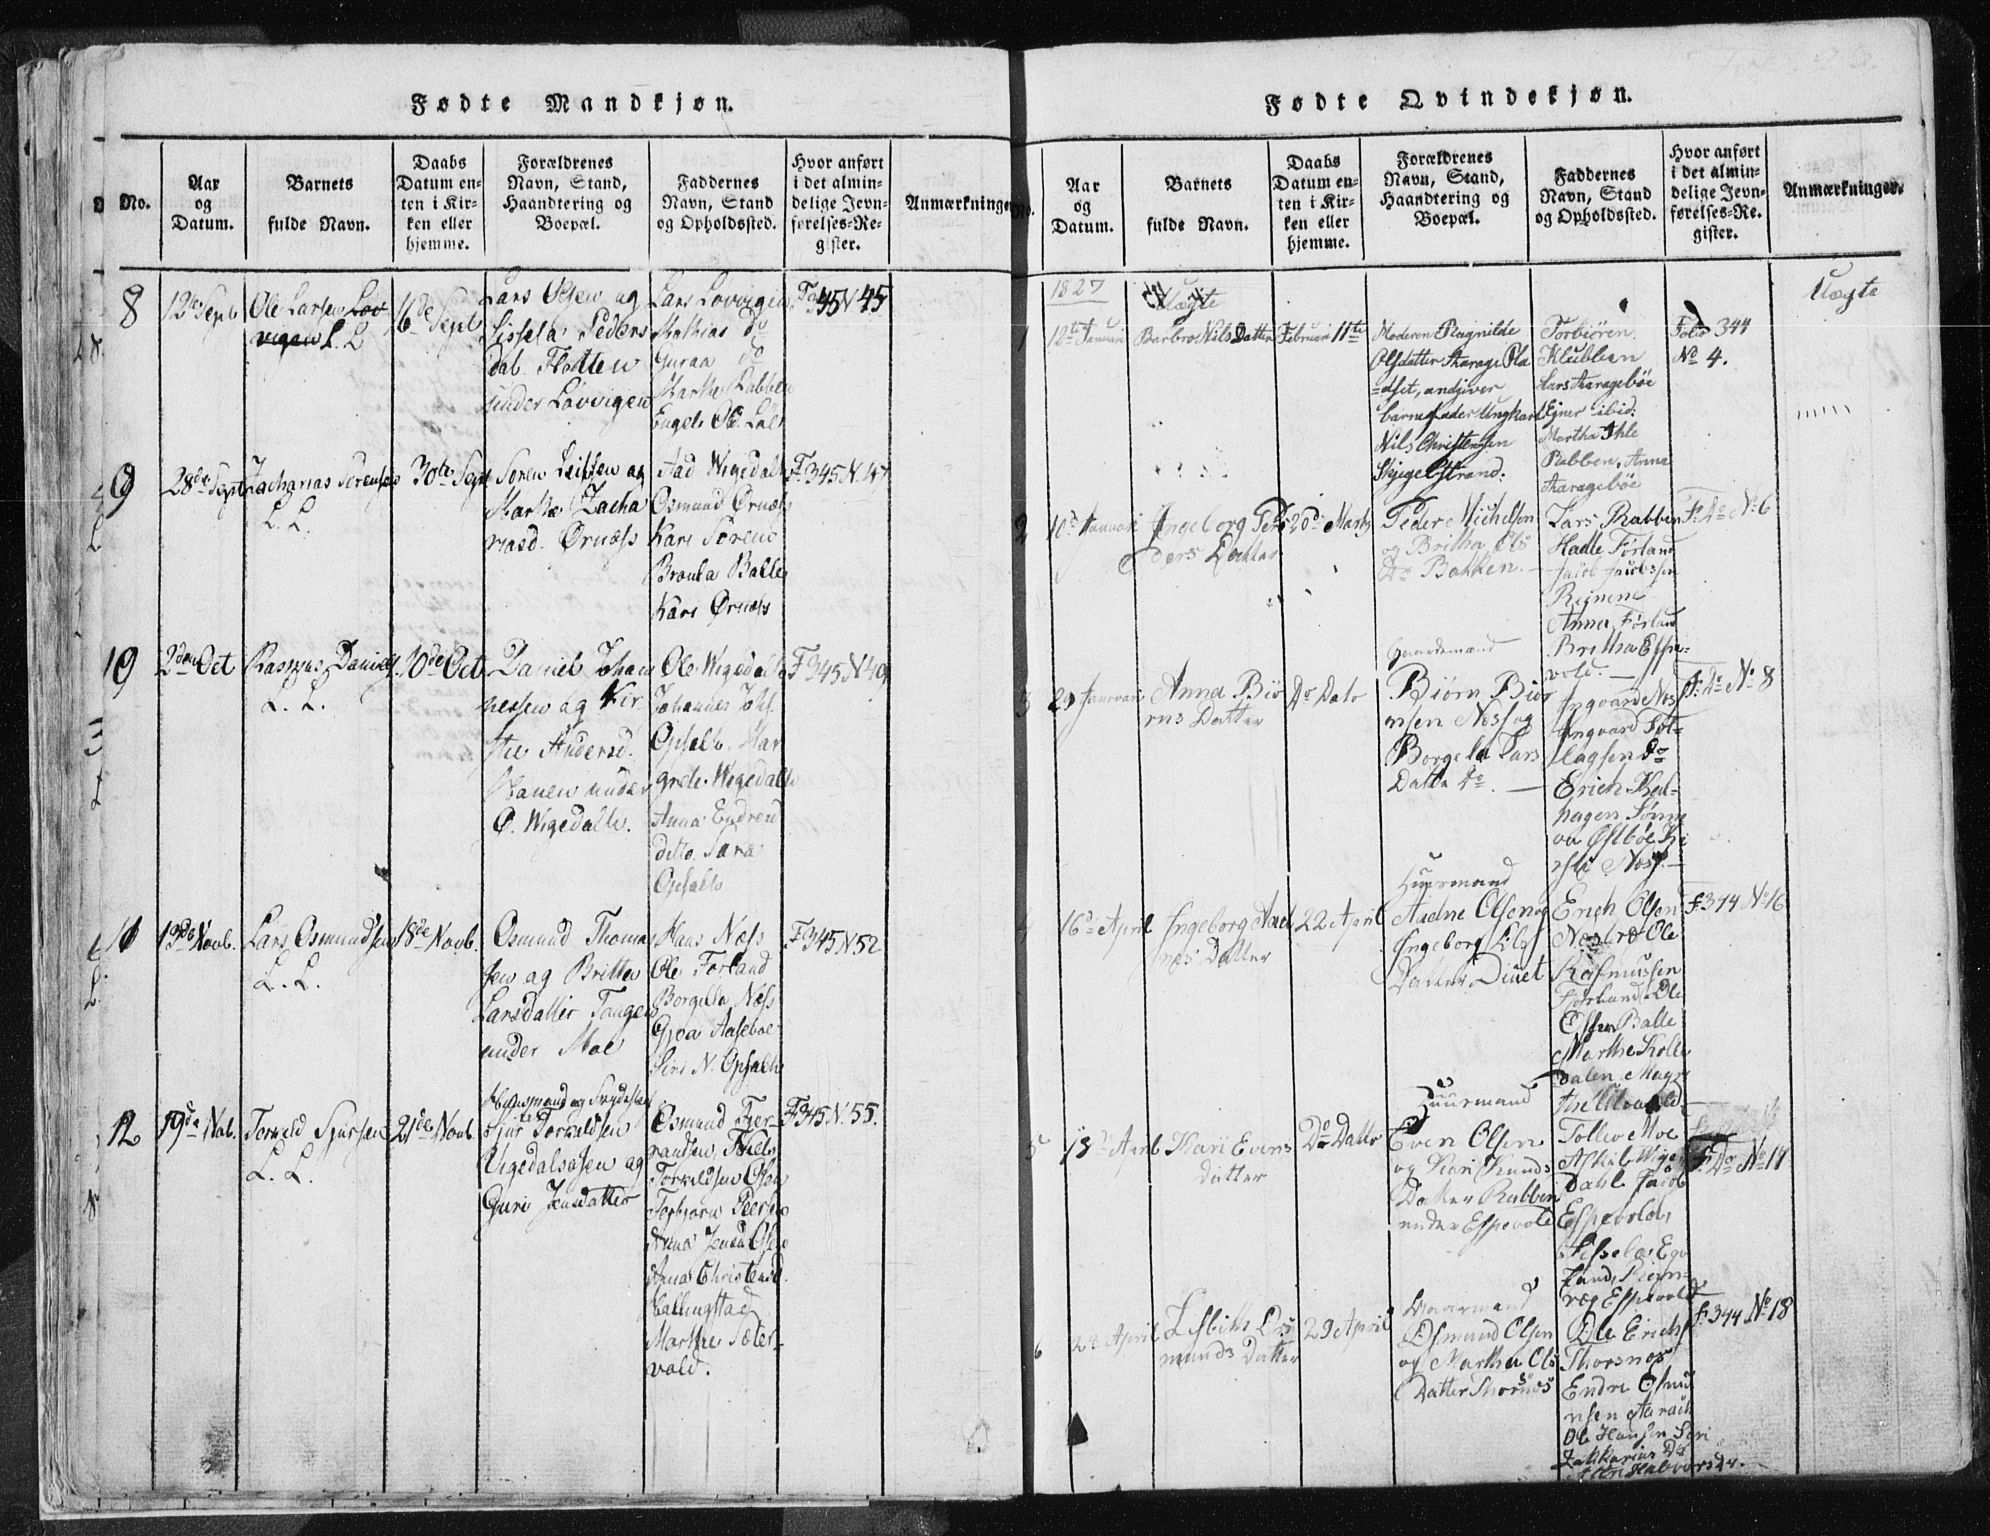 Fødte Mandkjøn.
No.
Aar
og
Datum.
Barnets
fulde Navn.
Daabs
Datum en-
ten i Kir-
ken eller
hjemme.
Forældrenes
Navn, Stand,
Haandtering og
Boepæl.
Faddernes
Navn, Stand
og Opholdssted.
Hvor anført
i det almin-
delige Jevn-
førelses-Re-
gister.
Anmærkninger
8
12te Sept
Ole Larsen
L. L
16de Sept
Lars Olsen og
Sissela Peders
dat. Flotten
under Løvvigen
Lars Lovvigen
Mathias do
Guraa do
Marthe Labben
Engel Ole
345 N 45
9
28de Sept
Zacharias Sørensen
L. L.
30te Sept
Soren Leifsen og
Marthe Zacha
riasd. Ørnæss
Aad Wigedahl
Osmund Ørnæss
Kari Sørens
Bronla Balle
Kari Ørnæss
F. 345 N 47
10
2den Oct
Rasmus Daniels.
L. L.
10de Oct
Daniel Johan
nessen og Kir
stie Andersd.
Hauen under
Ø. Wigedahl.
Ole Wigedahl
Johannes Joh.
Opsahl. Mar
grete Wigedahl
Anna Endresd
ditto. Sara
Opsahl
F 345 N 49
11
13de Novb.
Lars Osmundsen
L. L.
18de Novb.
Osmund Thoma
sen og Britte
Larsdatter Tangen
under Moe
Hans Næss
Ole Forland
Borgella Næss
Gjoa Aaseboe
Siri N. Opsahl
F 345 N 52
12
19de Nob.
Torveld Sjursen
L. L.
21de Novb.
Huusmand og
Sjur Torveldsen
Vigedalsaasen og
Guri Jensdatter
Osmund Tjer-
randsen, Niels
Torveldsen Osen
Torbjørn Peers
Anna Jensd Osen
Anna Christensd.
Hallingstad
Marthe Sæter-
vold.
F 345 N. 55.
Fødte Qvindekjøn.
No.
Aar
og
Datum.
Barnets
fulde Navn.
Daabs
Datum en-
ten i Kir-
ken eller
hjemme.
Forældrenes
Navn, Stand,
Haandtering og
Boepæl.
Faddernes
Navn, Stand
og Opholdssted.
Hvor anført
i det almin-
delige Jevn-
førelses-Re-
gister.
Anmærkninger.
1827
Uægte
Uægte
1
12te Januari
Barbro Nils Datter
Februari 11te
Moderen Ragnilde
Olsdatter Aarage Pla
=dset, andgiver
barnefader Ungkarl
Nils Christensen
Skjegelstrand.
Torbiören
Klubben
Lars Aarageböe
Ejner ibid:
Martha Ihle
Rabben, Anna
Aaragebøe
Folio 344
No 4.
2
10de Januari
Ingeborg Pe
ders Datter
20de Marts
Peder Michelsen
og Britha Ols
Dr Bakken.
Lars Rabben
Halle Førland
Jacob Jacobsen
Reinene
Anna Førland
Britha Espe-
vold.
F. do No 6
3
29 Januari
Anna Biö
rns Datter
Do Dato
Gaardmand
Biörn Biör
nsen Næss og
Borgela Lars
Datter do.
Ingvard Næs
Ingvard Tol-
lagsen do
Erich Kal-
hagen Sönne
va Østböe Ki
rsti Næss.
F. do No 8
16de April
Ingeborg Aad
nes Datter
22 April
Huusmand
Aadne Olsen og
Ingeborg Lils
Datter Duuet
Erich Olsen
Næsbrø Ole
Rasmussen
Førland Ole
Olsen Balle
Marthe Kolle
dalen Magre
the Ulvevold
F. 344 No 16
5
18de Aprl
Kari Evens
Datter
Do Dato
Huusmand
Even Olsen
og Kari Knuds
Datter Rabben
under Espevold
Tollev Moe
Askil Wige
Dahl Jacob
Espevold,
Sissela Ege
land, Reinn-
væg Espevold
F. Do No 17
6
23 April
Lisbith Os
munds Datter
29 April
Gaarmand
Osmund Olsen
og Martha Ols
Datter Thorsnæs
Ole Erichs
Thorsnæs
Endre Osmu
nsen Aarach
Ole Hansen Siri
Zakkarias Dr
Halvors Dr.
F. 344 No 18